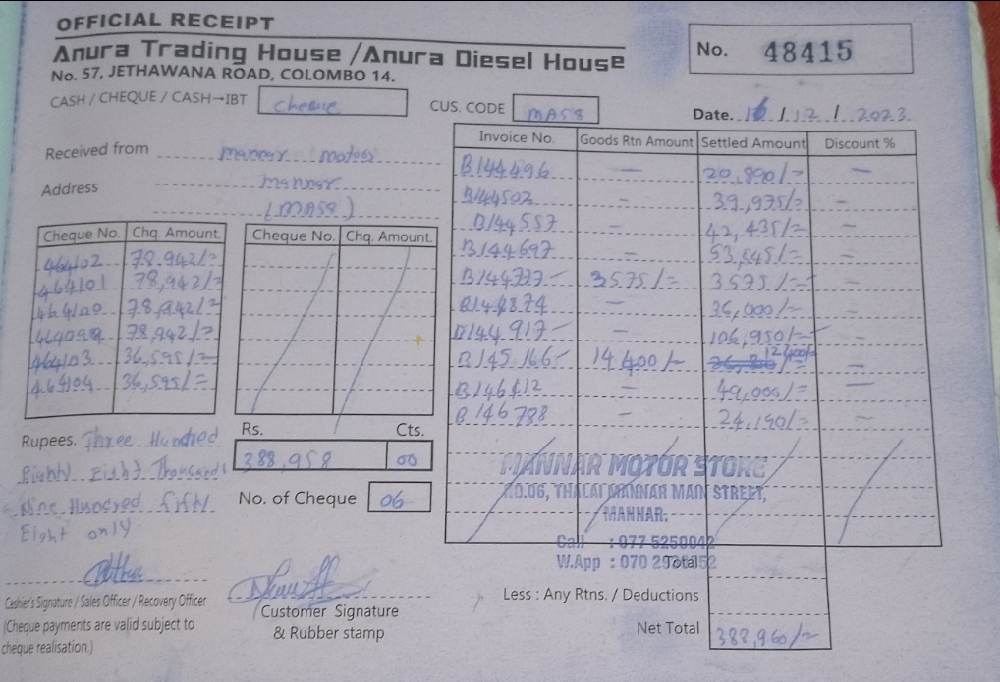 OFFICIAL RECEIPT
Anura Trading House / Anura Diesel House
No. 57, JETHAWANA ROAD, COLOMBO 14.
No. 48415
CASH / CHEQUE / CASH→IBT cheque
CUS. CODE MASS
Date. /12/2023
Received from mannar motors
Address mannar
(MASS)
Cheque No. Chq. Amount.
464102 78,942/=
464101 78,942/=
464100 78,942/=
464099 78,942/=
464103 36,595/=
464104 36,595/=
Cheque No. Chq. Amount.
Invoice No. Goods Rtn Amount Settled Amount Discount %
B144496 — 20,890/= —
B144502 — 39,975/= —
B144557 — 42,435/= —
B144697 — 53,545/= —
B144727 3575/= 3575/= —
B144874 — 36,000/= —
B144917 — 106,950/= —
B145166 14400/= 12400/= —
B146412 — 49,000/= —
B146788 — 24,190/= —
Rupees. Three Hundred
Eighty Eight Thousand
Nine Hundred fifty
Eight only
Rs. Cts.
388,958 00
No. of Cheque 06
MANNAR MOTOR STORE
NO.06, THALAI MANNAR MAIN STREET,
MANNAR.
Call : 077 5250042
W.App : 070
Total
Less : Any Rtns. / Deductions
Net Total 388,960/=
Cashie's Signature / Sales Officer / Recovery Officer
(Cheque payments are valid subject to
cheque realisation.)
Customer Signature
& Rubber stamp